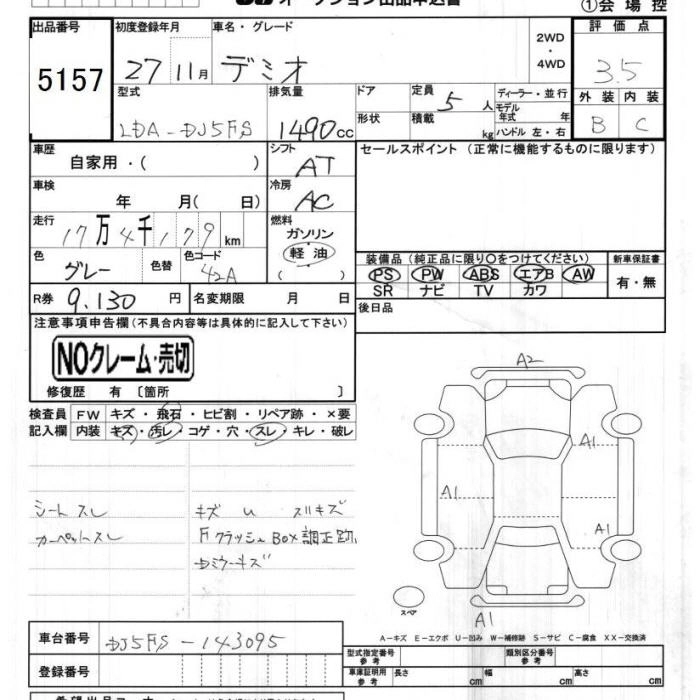 オークション出品申込書
①会場控
出品番号 初度登録年月 車名・グレード 2WD・4WD 評価点
5157 27 11月 デミオ 3.5
型式 排気量 ドア 定員 5人 ディーラー・並行 外装 内装
LDA-DJ5FS 1490cc 形状 積載 kg モデル年式 年 ハンドル 左・右 B C
車歴 シフト セールスポイント (正常に機能するものに限ります)
自家用・( ) AT
車検 冷房
年 月( 日) AC
走行 燃料
17万4千179km ガソリン
軽油
色 色替 色コード ( )
グレー 42A
装備品(純正品に限り○をつけてください) 新車保証書
PS PW ABS エアB AW 有・無
SR ナビ TV カワ
R券 9,130円 名変期限 月 日 後日品
注意事項申告欄(不具合内容等は具体的に記入して下さい)
NOクレーム・売切
修復歴 有〔箇所 〕
検査員 FW キズ・飛石・ヒビ割・リペア跡・×要
記入欄 内装 キズ・汚レ・コゲ・穴・スレ・キレ・破レ
シートスレ キズ U スリキズ
カーペットスレ FクラッシュBOX調正跡
Dミラーキズ
A2
A1
A1
A1
スペア
A1
A-キズ E-エクボ U-凹み W-補修跡 S-サビ C-腐食 XX-交換済
車台番号 DJ5FS-143095
型式指定番号 参考 類別区分番号 参考
登録番号 車庫証明用 参考 長さ cm 幅 cm 高さ cm